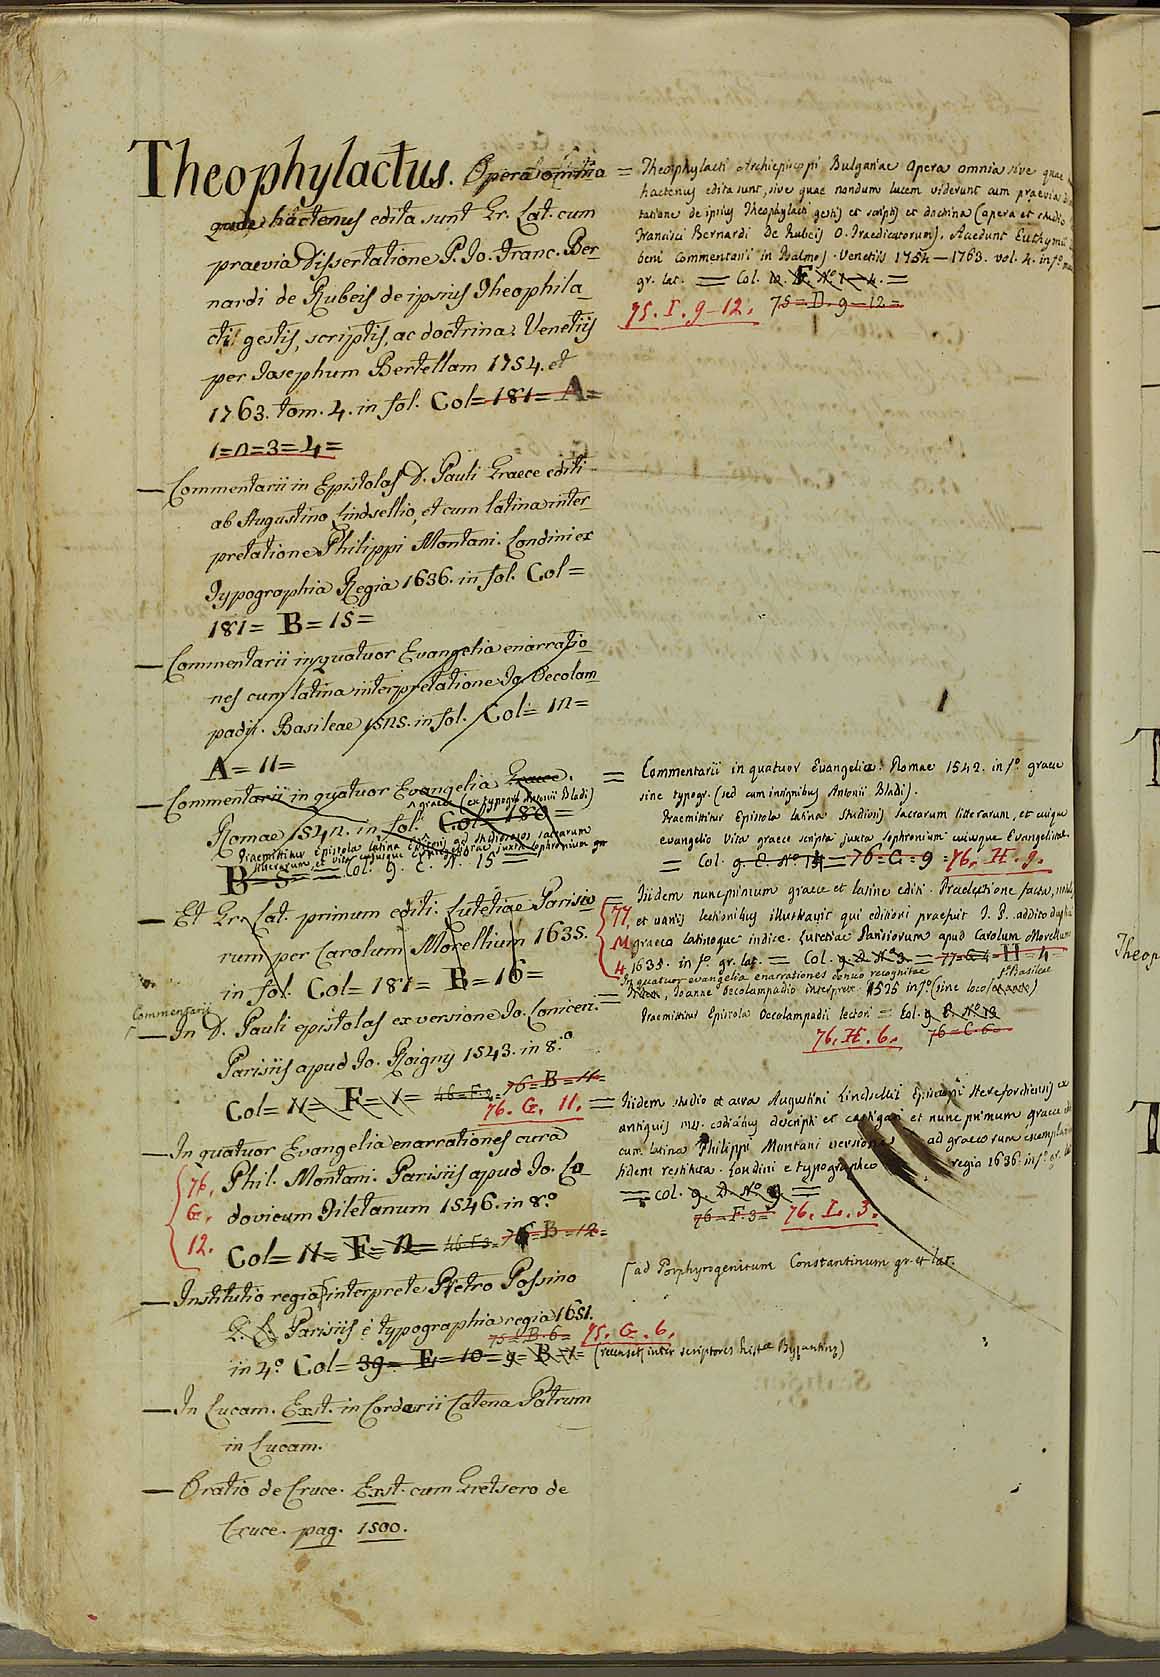 Theophylactus. Opera omnia
quae hactenus edita sunt Gr. Lat. cum
praevia Dissertatione P. Jo. Franc. Ber-
nardi de Rubeis de ipsius Theophila-
cti gestis, scriptis, ac doctrina. Venetiis
per Josephum Bertellam 1754. et
1763. tom. 4. in fol. Col= 181= A=
1=2=3=4=
— Commentarii in Epistolas D. Pauli Graece editi
ab Augustino Lindsellio, et cum latina inter-
pretatione Philippi Montani. Londini ex
Typographia Regia 1636. in fol. Col=
181= B= 15=
— Commentarii in quatuor Evangelia enarratio-
nes cum latina interpretatione Jo. Oecolam-
padii. Basileae 1525. in fol. Col= 12=
A= 11=
— Commentarii in quatuor Evangelia Graece.
graece (ex typogr. Antonii Bladi)
Romae 1542. in fol. Col= 180=
Praemittitur Epistola latina ad studiosos sacrarum
litterarum, et vita cujusque Evangelistae juxta Sophronium gr
B= 5= = Col. 9. C. N. 15 =
— Et Gr. Lat. primum editi. Lutetiae Parisio-
rum per Carolum Morellium 1635.
in fol. Col= 181= B= 16=
Commentarii
— In D. Pauli epistolas ex versione Jo. Loniceri.
Parisiis apud Jo. Roigny 1543. in 8.º
Col= 11= F= 1= 46=F.2= 76=B=11=
76. G. 11.
— In quatuor Evangelia enarrationes cura
76. Phil. Montani. Parisiis apud Jo. Lo-
G. dovicum Tiletanum 1546. in 8.º
12. Col= 11= F= 2= 46=F.3= 76=B=12=
— Institutio regia interprete Petro Possino
Parisiis è typographia regia 1651.
75=B.6= 75. G. 6.
in 4.º Col= 39= E= 10= 9= B= 1= (recenset. inter scriptores hist.ae Byzantinae)
— In Lucam. Exst. in Corderii Catena Patrum
in Lucam.
— Oratio de Cruce. Exst. cum Gretsero de
Cruce. pag. 1500.
= Theophylacti Archiepiscopi Bulgariae Opera omnia sive quae
hactenus edita sunt, sive quae nondum lucem viderunt cum praevia
tatione de ipsius Theophylacti gestis et scriptis et doctrina (opera et studio
Francisci Bernardi De Rubeis O. Praedicatorum). Accedunt Euthymii
beni Commentarii in Psalmos. Venetiis 1754—1763. vol. 4. in fº
gr. lat. = Col. 12. F. Nº 1—4. =
75. I. 9–12. 75=D. 9—12=
= Commentarii in quatuor Evangelia. Romae 1542. in fº. graece
sine typogr. (sed cum insignibus Antonii Bladi).
Praemittitur Epistola latina studiosis sacrarum litterarum, et cuique
evangelio vita graece scripta juxta Sophronium cuiusque Evangelistae
= Col. 9. C. Nº 15= 76=C=9= 76. H. 9.
= Iidem nunc primum graece et latine editi. Praelectione facta,
77. et variis lectionibus illustravit qui editioni praefuit
M graeco latinoque indice. Lutetiae Parisiorum apud Carolum Morellum
4. 1635. in fº. gr. lat. = Col. 9. D. Nº 3. = 77=G.4= H=4=
In quatuor evangelia enarrationes denuo recognitae fº Basileae
= Iidem, Joanne Oecolampadio interprete. 1525 in fº (sine loco)
Praemittitur Epistola Oecolampadii lectori = Col. 9. C. Nº 12
76. H. 6. 76=C.6=
= Iidem studio et cura Augustini Lindsellii Episcopi Herefordiensis ex
antiquis mss. codicibus descripti et castigati et nunc primum graece
cum latina Philippi Montani versione ad graecorum exemplarium
fidem restituta. Londini e typographeo regio 1636. in fº. gr.
= Col. 9. D. Nº 9. =
76=F.3= 76. L. 3.
ad Porphyrogenitum Constantinum gr. et lat.
Theop